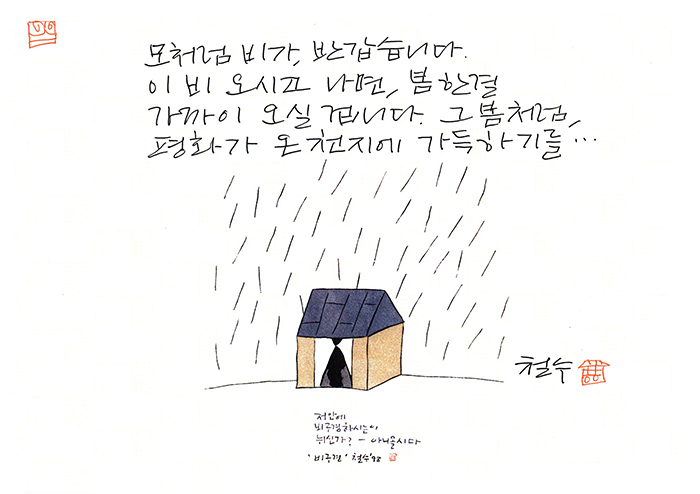 모처럼 비가, 반갑습니다.
이 비 오시고 나면, 봄 한결
가까이 오실 겁니다. 그 봄처럼,
평화가 온 천지에 가득하기를…
철수
저 안에
비구경하시는 이
뉘신가? – 아니올시다
'비구경' 철수'98